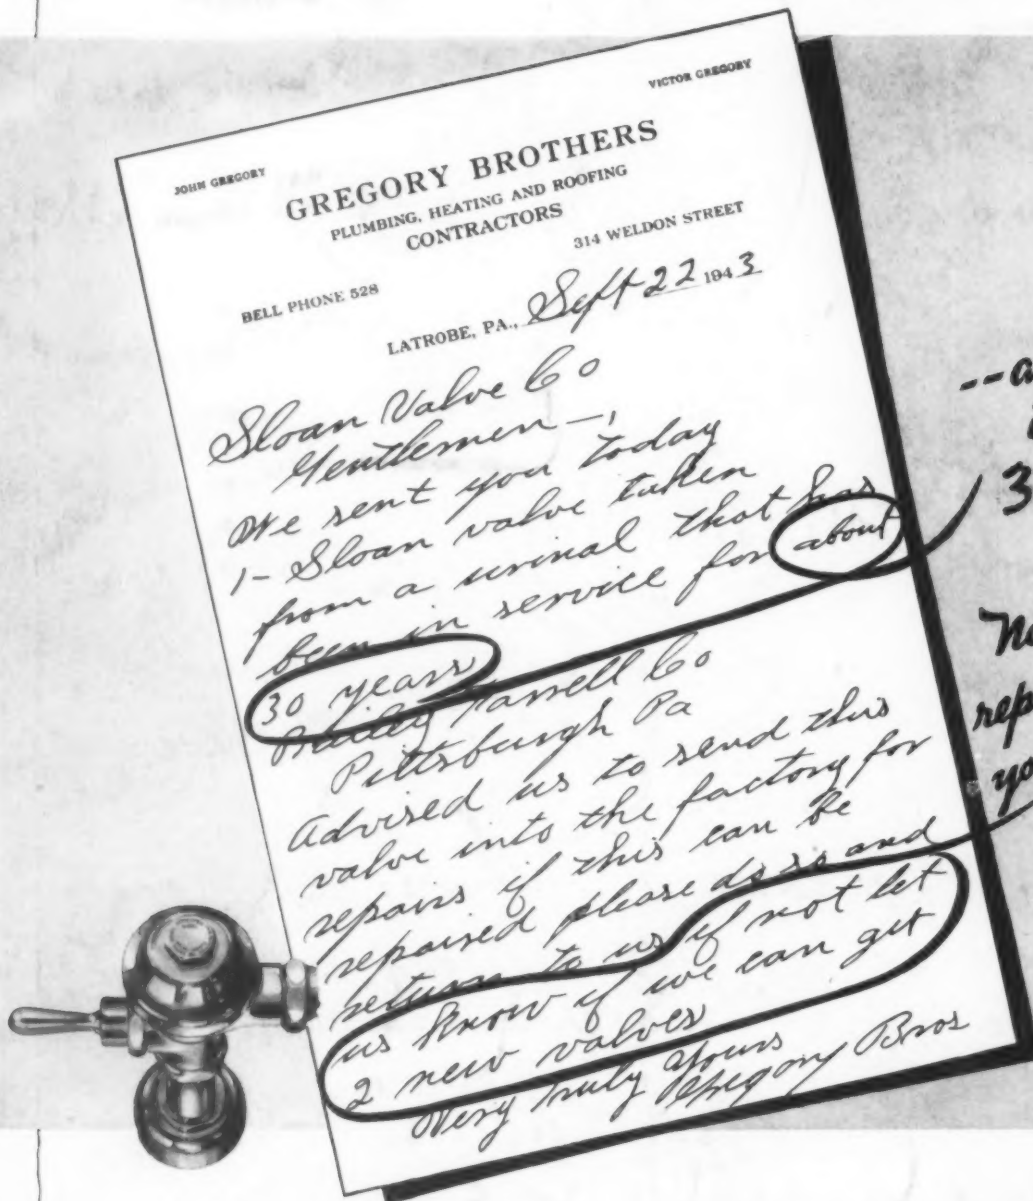 JOHN GREGORY
VICTOR GREGORY
GREGORY BROTHERS
PLUMBING, HEATING AND ROOFING
CONTRACTORS
BELL PHONE 528
314 WELDON STREET
LATROBE, PA., Sept 22 1943
Sloan Valve Co
Gentlemen —,
We sent you today
1 - Sloan valve taken
from a urinal that has
been in service for about
30 years
Bailey Farrell Co
Pittsburgh Pa
Advised us to send this
valve into the factory for
repairs if this can be
repaired please do so and
return to us if not let
us know if we can get
2 new valves
Very Truly Yours
Gregory Bros
--a
3
No
rep
yo